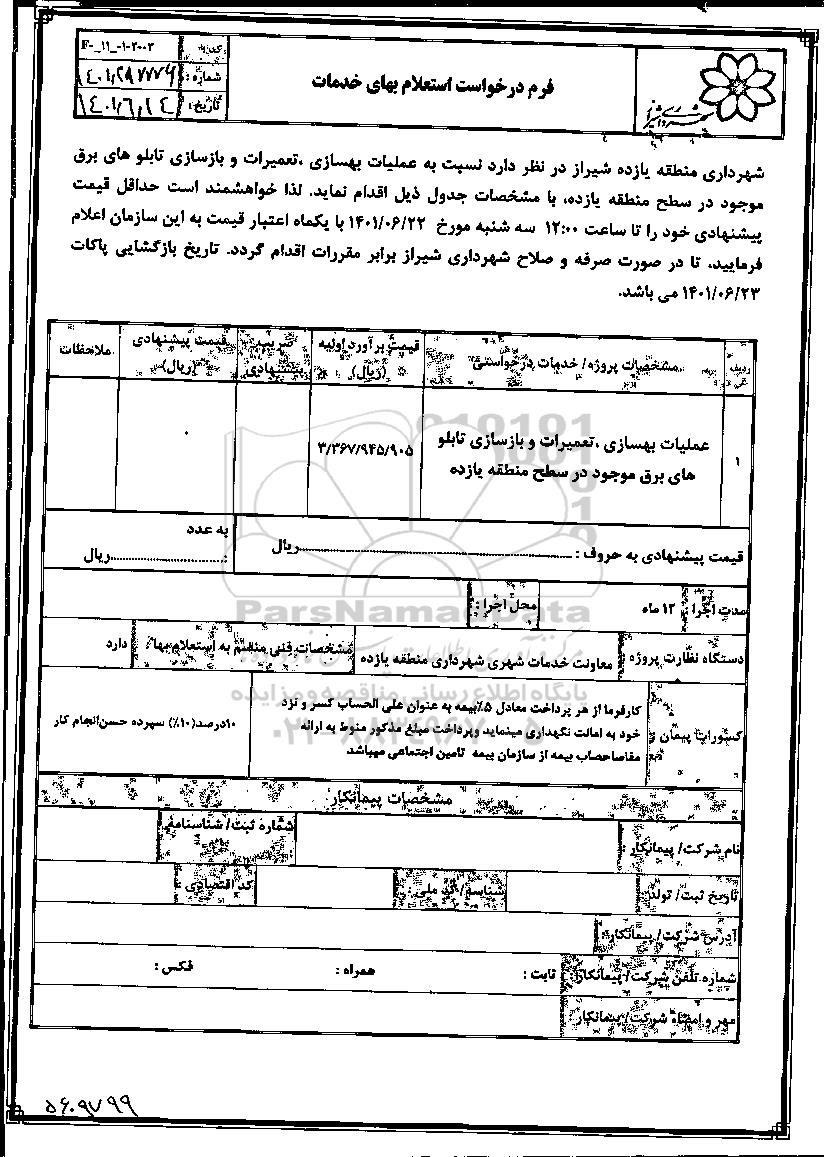 کد: F-_11_-1-2-003
شماره: ۱۴۰۱/۲۸۷۷۷۶
تاریخ: ۱۴۰۱/۶/۱۴
فرم درخواست استعلام بهای خدمات
شهرداری منطقه یازده شیراز در نظر دارد نسبت به عملیات بهسازی ،تعمیرات و بازسازی تابلو های برق
موجود در سطح منطقه یازده، با مشخصات جدول ذیل اقدام نماید. لذا خواهشمند است حداقل قیمت
پیشنهادی خود را تا ساعت ۱۲:۰۰ سه شنبه مورخ ۱۴۰۱/۰۶/۲۲ با یکماه اعتبار قیمت به این سازمان اعلام
فرمایید، تا در صورت صرفه و صلاح شهرداری شیراز برابر مقررات اقدام گردد. تاریخ بازگشایی پاکات
۱۴۰۱/۰۶/۲۳ می باشد.
ردیف مشخصات پروژه/ خدمات درخواستی قیمت برآورد اولیه (ریال) ضریب پیشنهادی قیمت پیشنهادی (ریال) ملاحظات
۱ عملیات بهسازی ،تعمیرات و بازسازی تابلو ۳/۳۶۷/۹۴۵/۹۰۵
های برق موجود در سطح منطقه یازده
قیمت پیشنهادی به حروف : ............ریال به عدد
:............ریال
مدت اجرا : ۱۲ ماه محل اجرا :
دستگاه نظارت پروژه : معاونت خدمات شهری شهرداری منطقه یازده مشخصات فنی منضم به استعلام بها: دارد
کسورات پیمان کارفرما از هر پرداخت معادل ۵٪بیمه به عنوان علی الحساب کسر و نزد
خود به امانت نگهداری مینماید وپرداخت مبلغ مذکور منوط به ارائه
مفاصاحصاب بیمه از سازمان بیمه تامین اجتماعی میباشد
۱۰درصد(۱۰٪) سپرده حسن انجام کار
مشخصات پیمانکار
نام شرکت/ پیمانکار : شماره ثبت/ شناسنامه
تاریخ ثبت/ تولد: شناسه/ کد ملی : کد اقتصادی :
آدرس شرکت/ پیمانکار :
شماره تلفن شرکت/ پیمانکار : ثابت : همراه : فکس :
مهر و امضاء شرکت/ پیمانکار :
۵۶۰۹۷۹۹
ParsNamadData
پایگاه اطلاع رسانی مناقصه و مزایده
۰۲۱-۸۸۳۴۹۶۷۰-۵